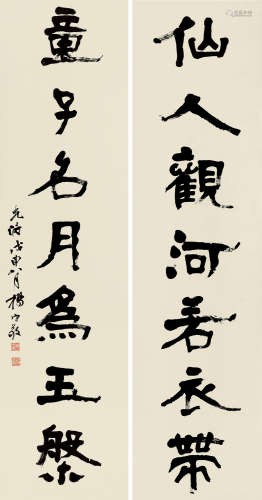 仙人觀河若衣帶
童子名月爲玉槃
光緒戊申八月楊守敬